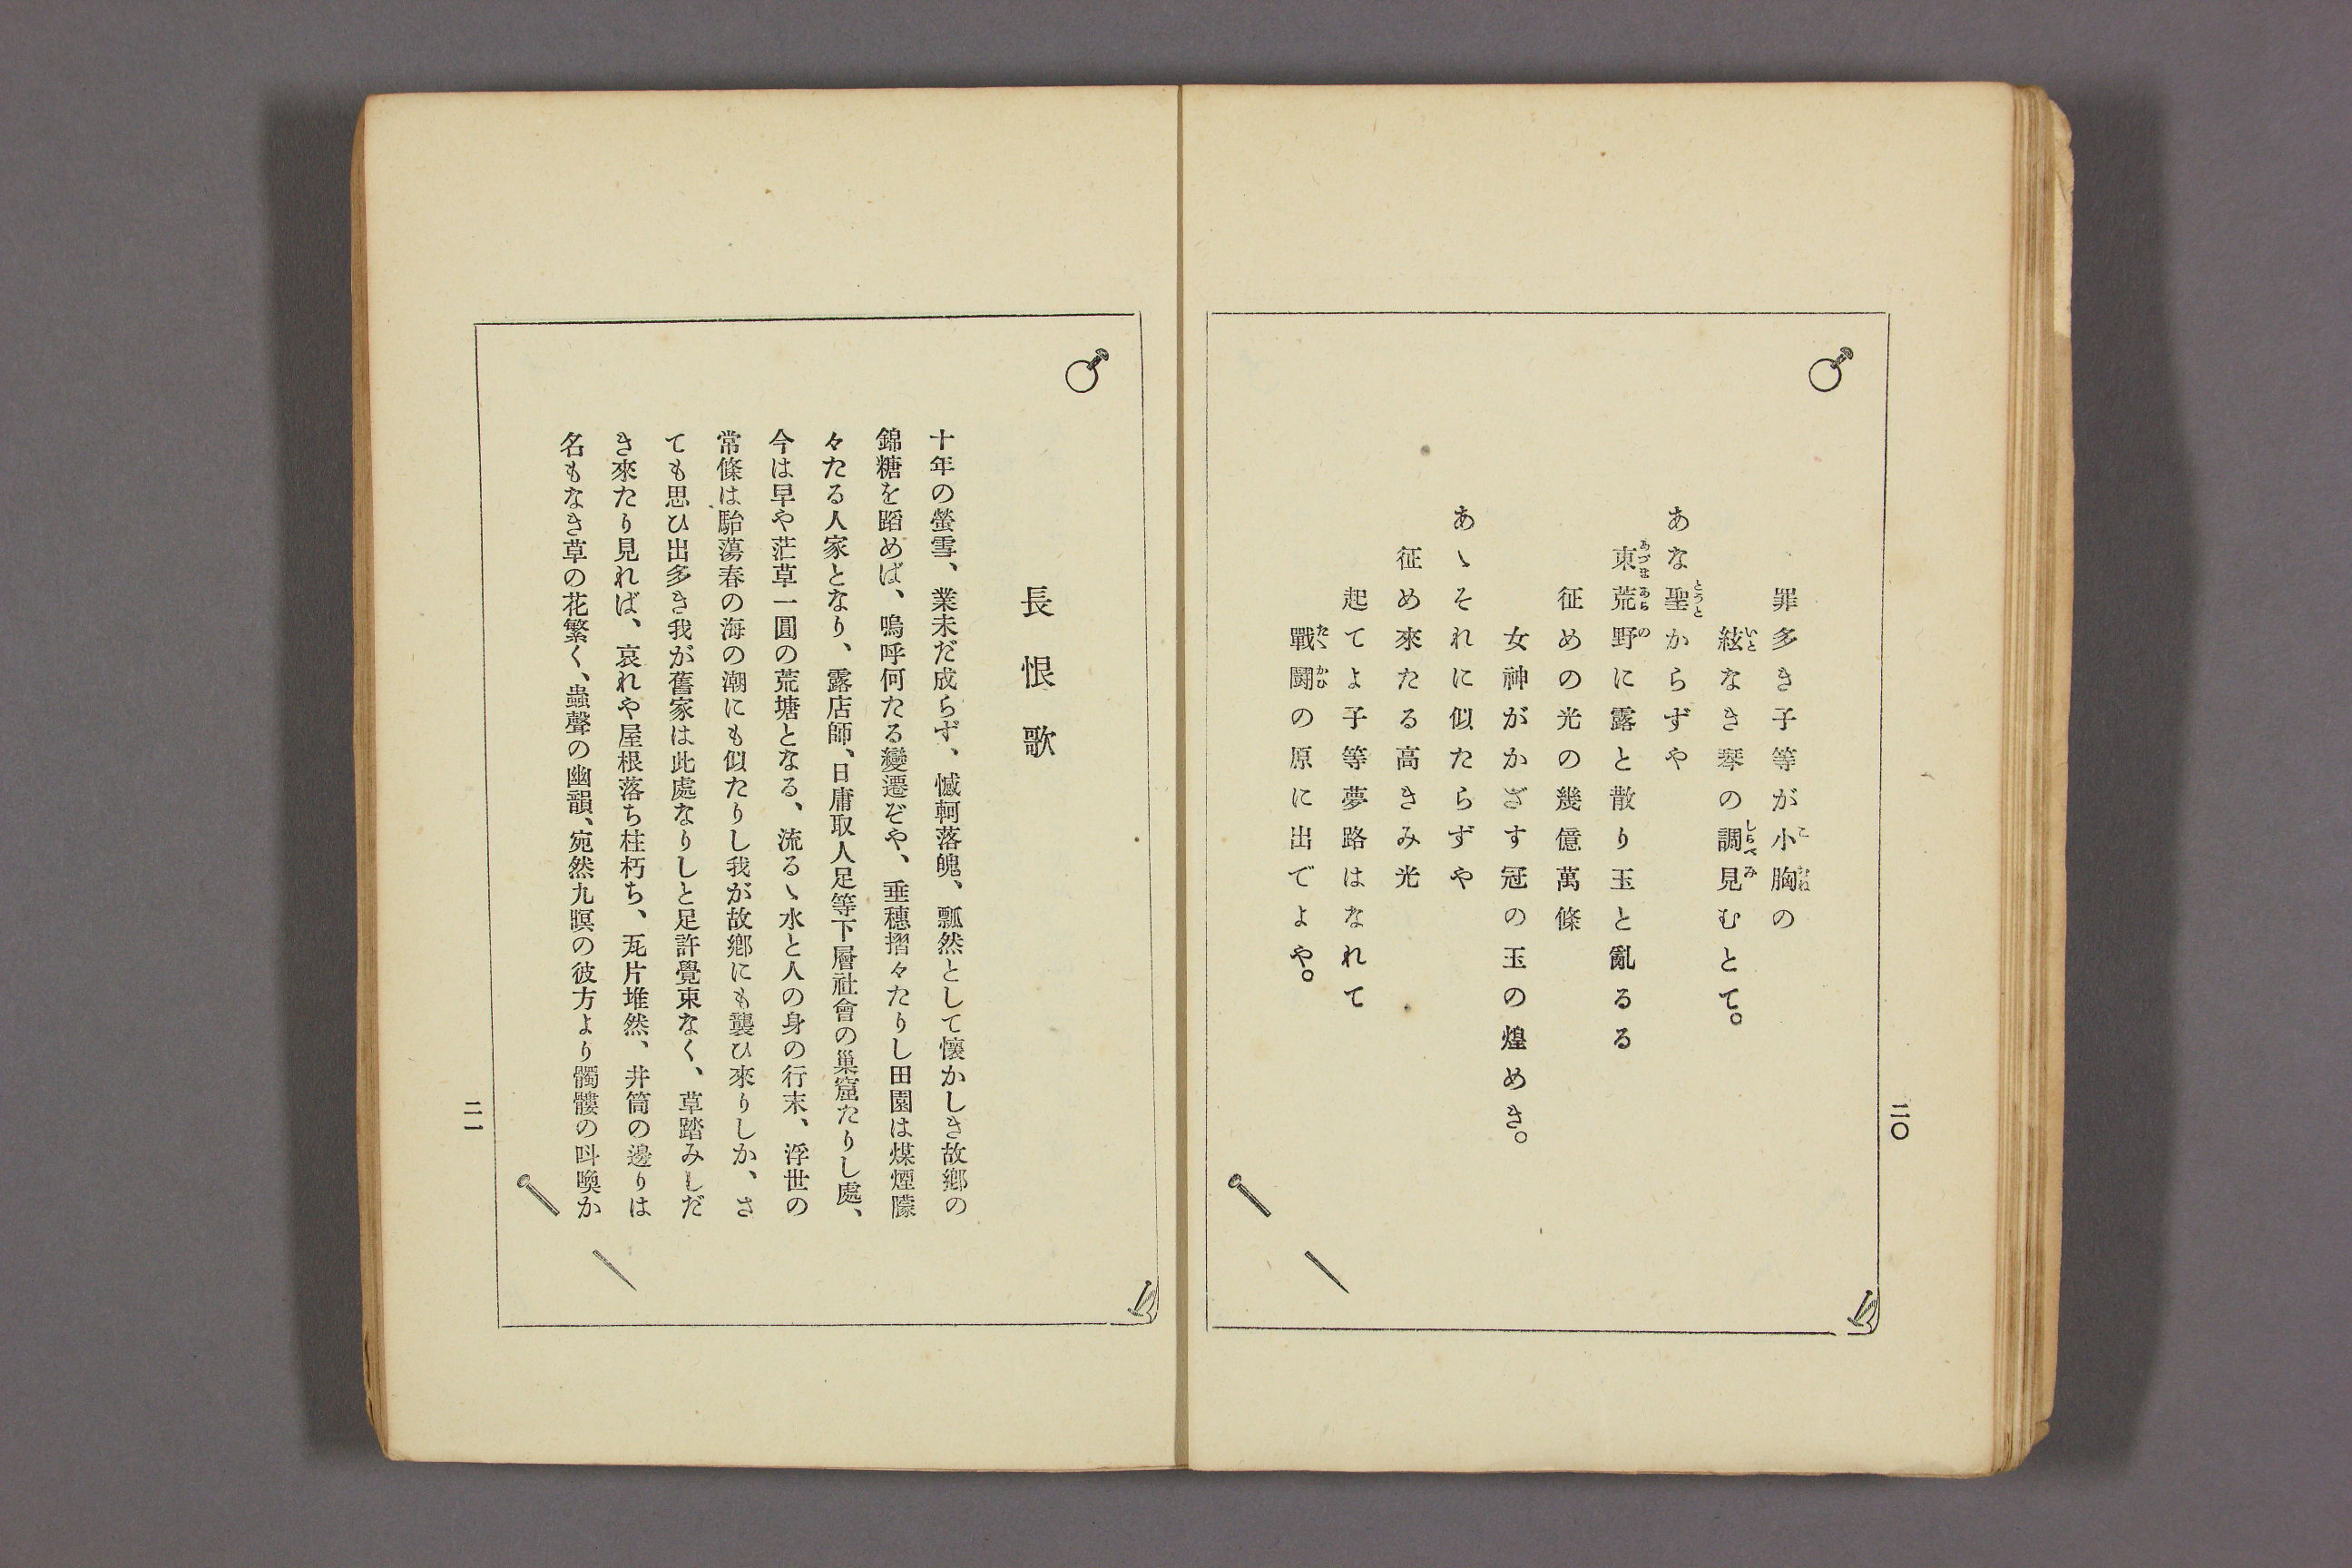 罪多き子等が小胸の
絃なき琴の調見むとて。
あな聖からずや
東荒野に露と散り玉と亂るる
征めの光の幾億萬條
女神がかざす冠の玉の煌めき。
あゝそれに似たらずや
征め來たる高きみ光
起てよ子等夢路はなれて
戰鬪の原に出でよや。
二〇
長恨歌
十年の螢雪、業未だ成らず、憾軻落魄、瓢然として懷かしき故鄕の
錦糖を蹈めば、嗚呼何たる變遷ぞや、垂穗摺々たりし田園は煤煙朦
々たる人家となり、露店師、日庸取人足等下層社會の巢窟たりし處、
今は早や茫草一圓の荒塘となる、流るゝ水と人の身の行末、浮世の
常條は駘蕩春の海の潮にも似たりし我が故鄕にも襲ひ來りしか、さ
ても思ひ出多き我が舊家は此處なりしと足許覺束なく、草踏みしだ
き來たり見れば、哀れや屋根落ち柱朽ち、瓦片堆然、井筒の邊りは
名もなき草の花繁く、蟲聲の幽韻、宛然九暝の彼方より髑髏の呌喚か
二一